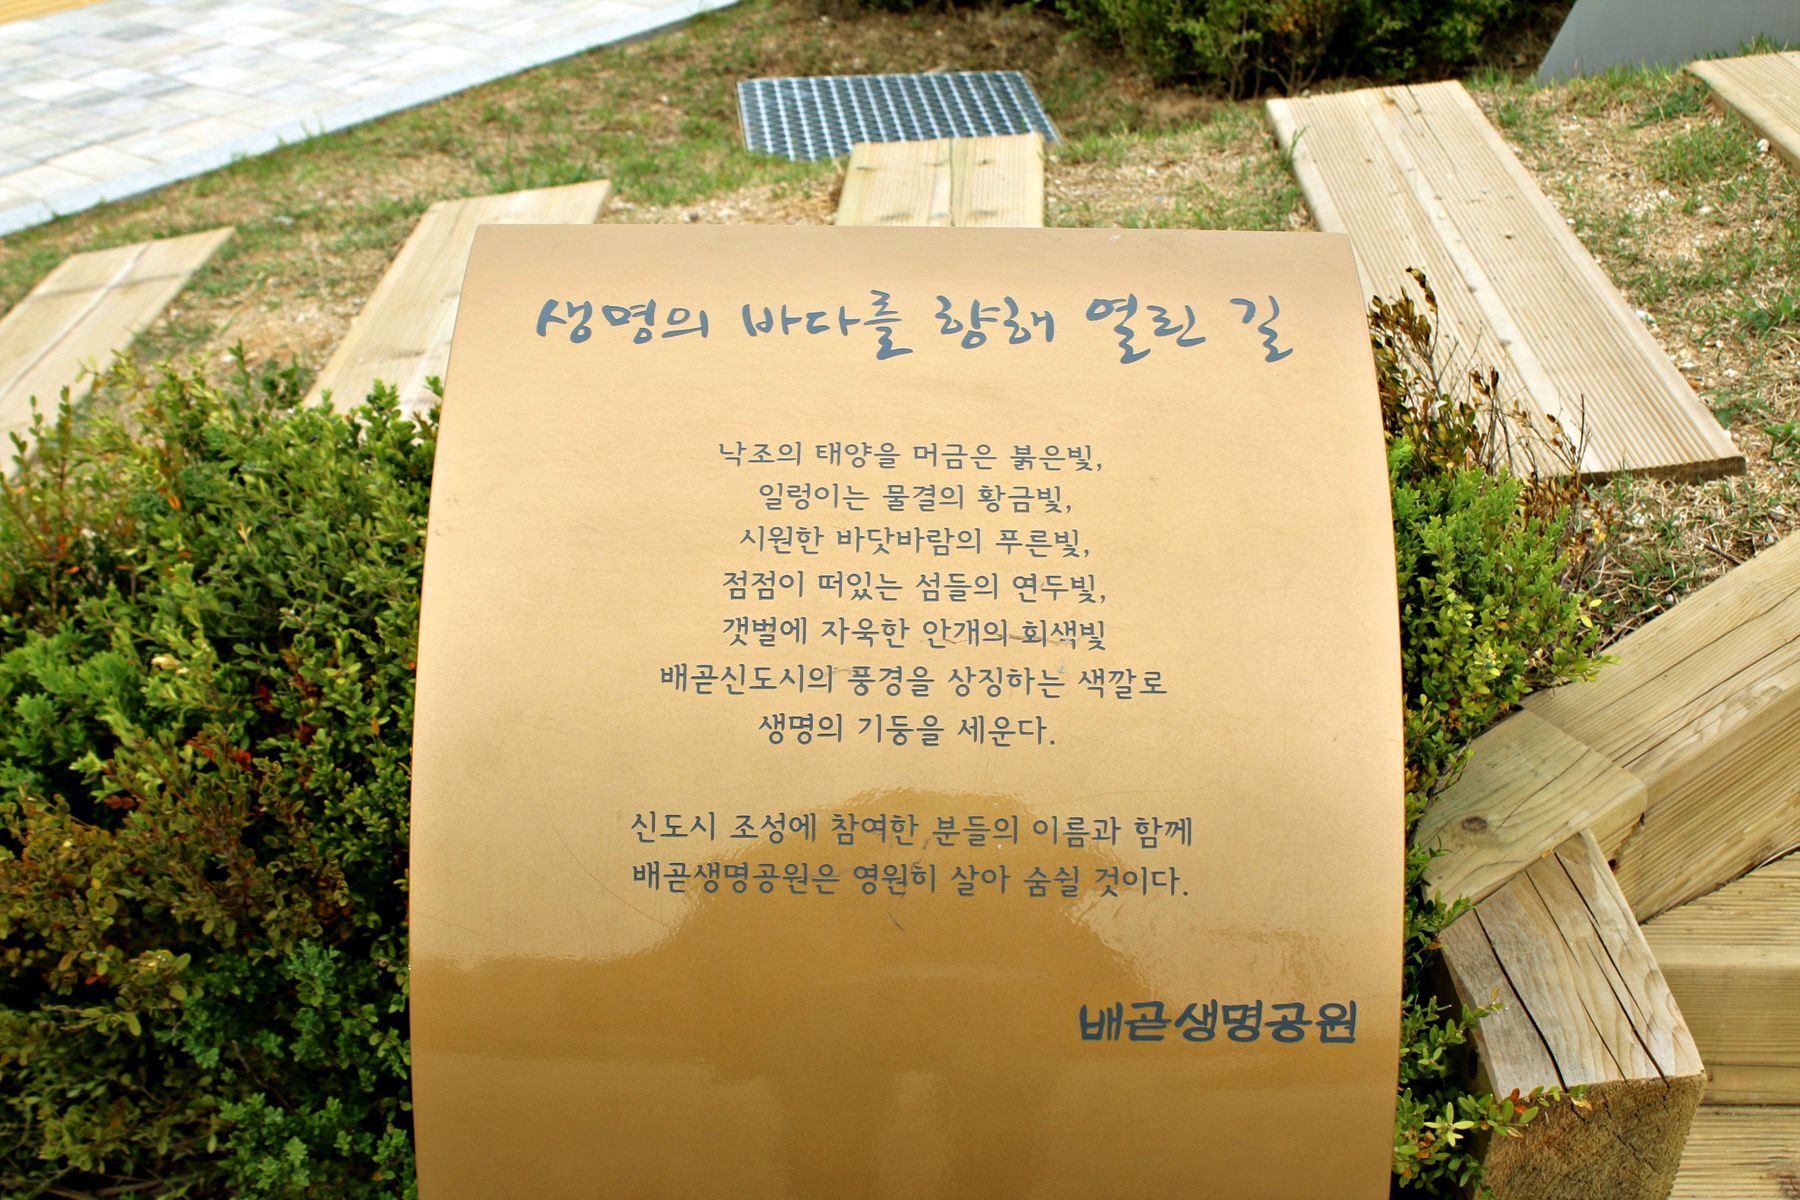 생명의 바다를 향해 열린 길
낙조의 태양을 머금은 붉은빛,
일렁이는 물결의 황금빛,
시원한 바닷바람의 푸른빛,
점점이 떠있는 섬들의 연두빛,
갯벌에 자욱한 안개의 회색빛
배곧신도시의 풍경을 상징하는 색깔로
생명의 기둥을 세운다.
신도시 조성에 참여한 분들의 이름과 함께
배곧생명공원은 영원히 살아 숨쉴 것이다.
배곧생명공원